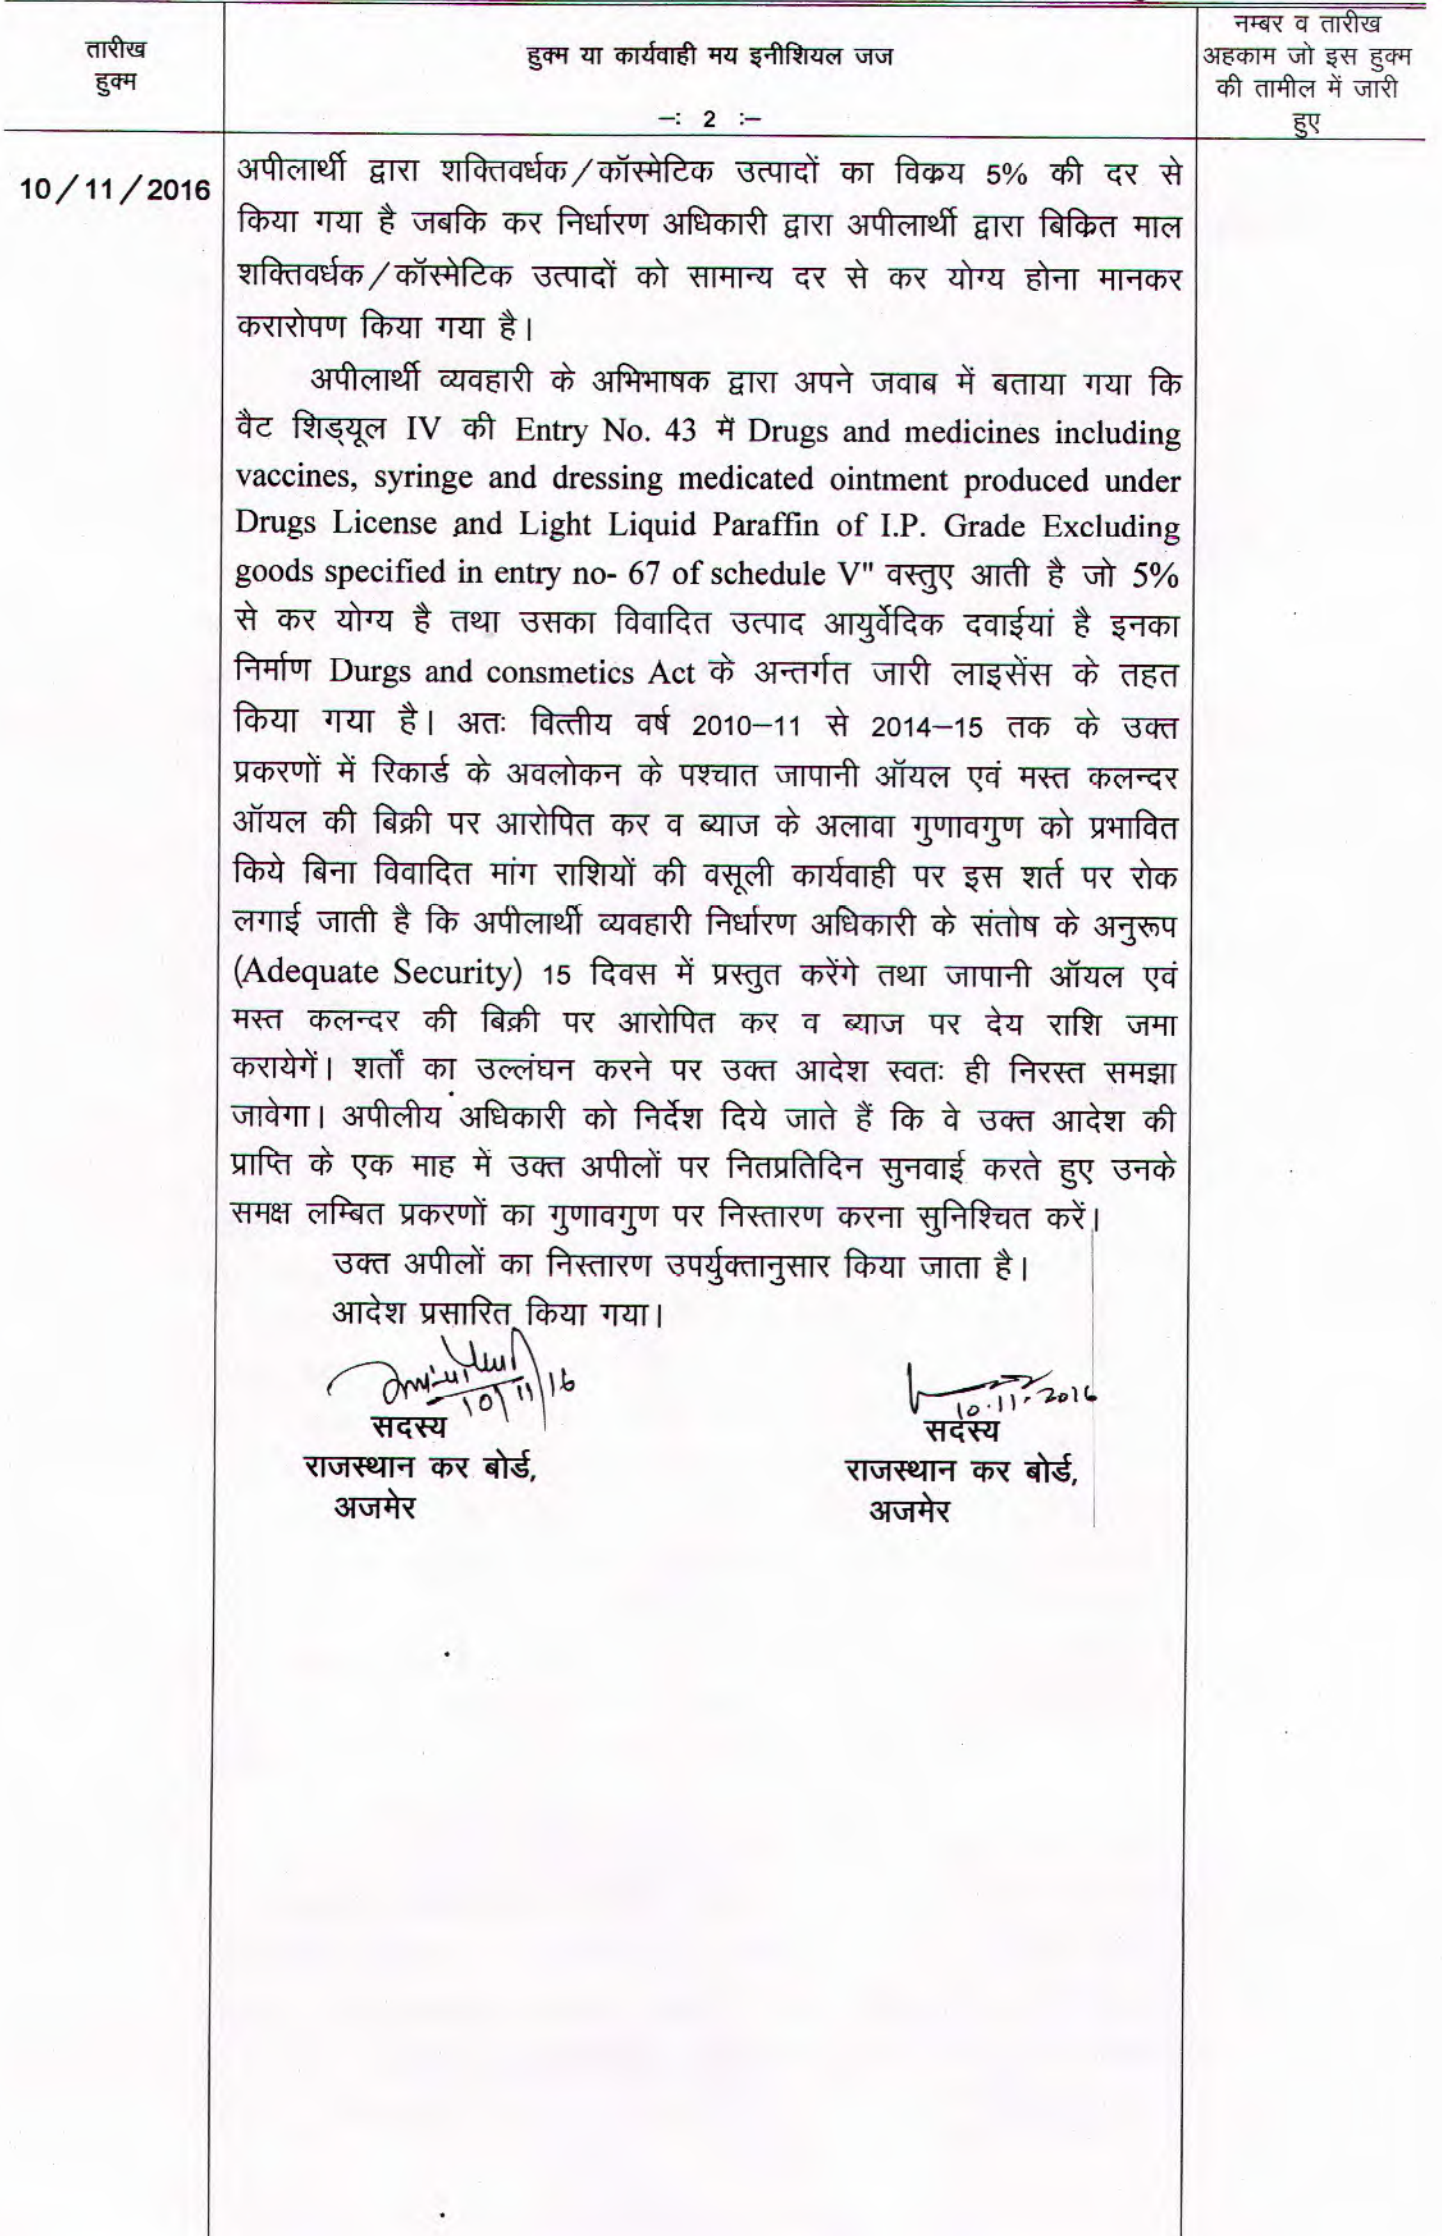 तारीख
हुक्म
हुक्म या कार्यवाही मय इनीशियल जज
–: 2 :–
नम्बर व तारीख
अहकाम जो इस हुक्म
की तामील में जारी
हुए
10/11/2016
अपीलार्थी द्वारा शक्तिवर्धक/कॉस्मेटिक उत्पादों का विक्रय 5% की दर से
किया गया है जबकि कर निर्धारण अधिकारी द्वारा अपीलार्थी द्वारा बिक्रित माल
शक्तिवर्धक/कॉस्मेटिक उत्पादों को सामान्य दर से कर योग्य होना मानकर
करारोपण किया गया है।
अपीलार्थी व्यवहारी के अभिभाषक द्वारा अपने जवाब में बताया गया कि
वैट शिड्यूल IV की Entry No. 43 में Drugs and medicines including
vaccines, syringe and dressing medicated ointment produced under
Drugs License and Light Liquid Paraffin of I.P. Grade Excluding
goods specified in entry no- 67 of schedule V" वस्तुए आती है जो 5%
से कर योग्य है तथा उसका विवादित उत्पाद आयुर्वेदिक दवाईयां है इनका
निर्माण Durgs and consmetics Act के अन्तर्गत जारी लाइसेंस के तहत
किया गया है। अतः वित्तीय वर्ष 2010–11 से 2014–15 तक के उक्त
प्रकरणों में रिकार्ड के अवलोकन के पश्चात जापानी ऑयल एवं मस्त कलन्दर
ऑयल की बिक्री पर आरोपित कर व ब्याज के अलावा गुणावगुण को प्रभावित
किये बिना विवादित मांग राशियों की वसूली कार्यवाही पर इस शर्त पर रोक
लगाई जाती है कि अपीलार्थी व्यवहारी निर्धारण अधिकारी के संतोष के अनुरूप
(Adequate Security) 15 दिवस में प्रस्तुत करेंगे तथा जापानी ऑयल एवं
मस्त कलन्दर की बिक्री पर आरोपित कर व ब्याज पर देय राशि जमा
करायेगें। शर्तों का उल्लंघन करने पर उक्त आदेश स्वतः ही निरस्त समझा
जावेगा। अपीलीय अधिकारी को निर्देश दिये जाते हैं कि वे उक्त आदेश की
प्राप्ति के एक माह में उक्त अपीलों पर नितप्रतिदिन सुनवाई करते हुए उनके
समक्ष लम्बित प्रकरणों का गुणावगुण पर निस्तारण करना सुनिश्चित करें।
उक्त अपीलों का निस्तारण उपर्युक्तानुसार किया जाता है।
आदेश प्रसारित किया गया।
10/11/16
सदस्य
राजस्थान कर बोर्ड,
अजमेर
10.11.2016
सदस्य
राजस्थान कर बोर्ड,
अजमेर